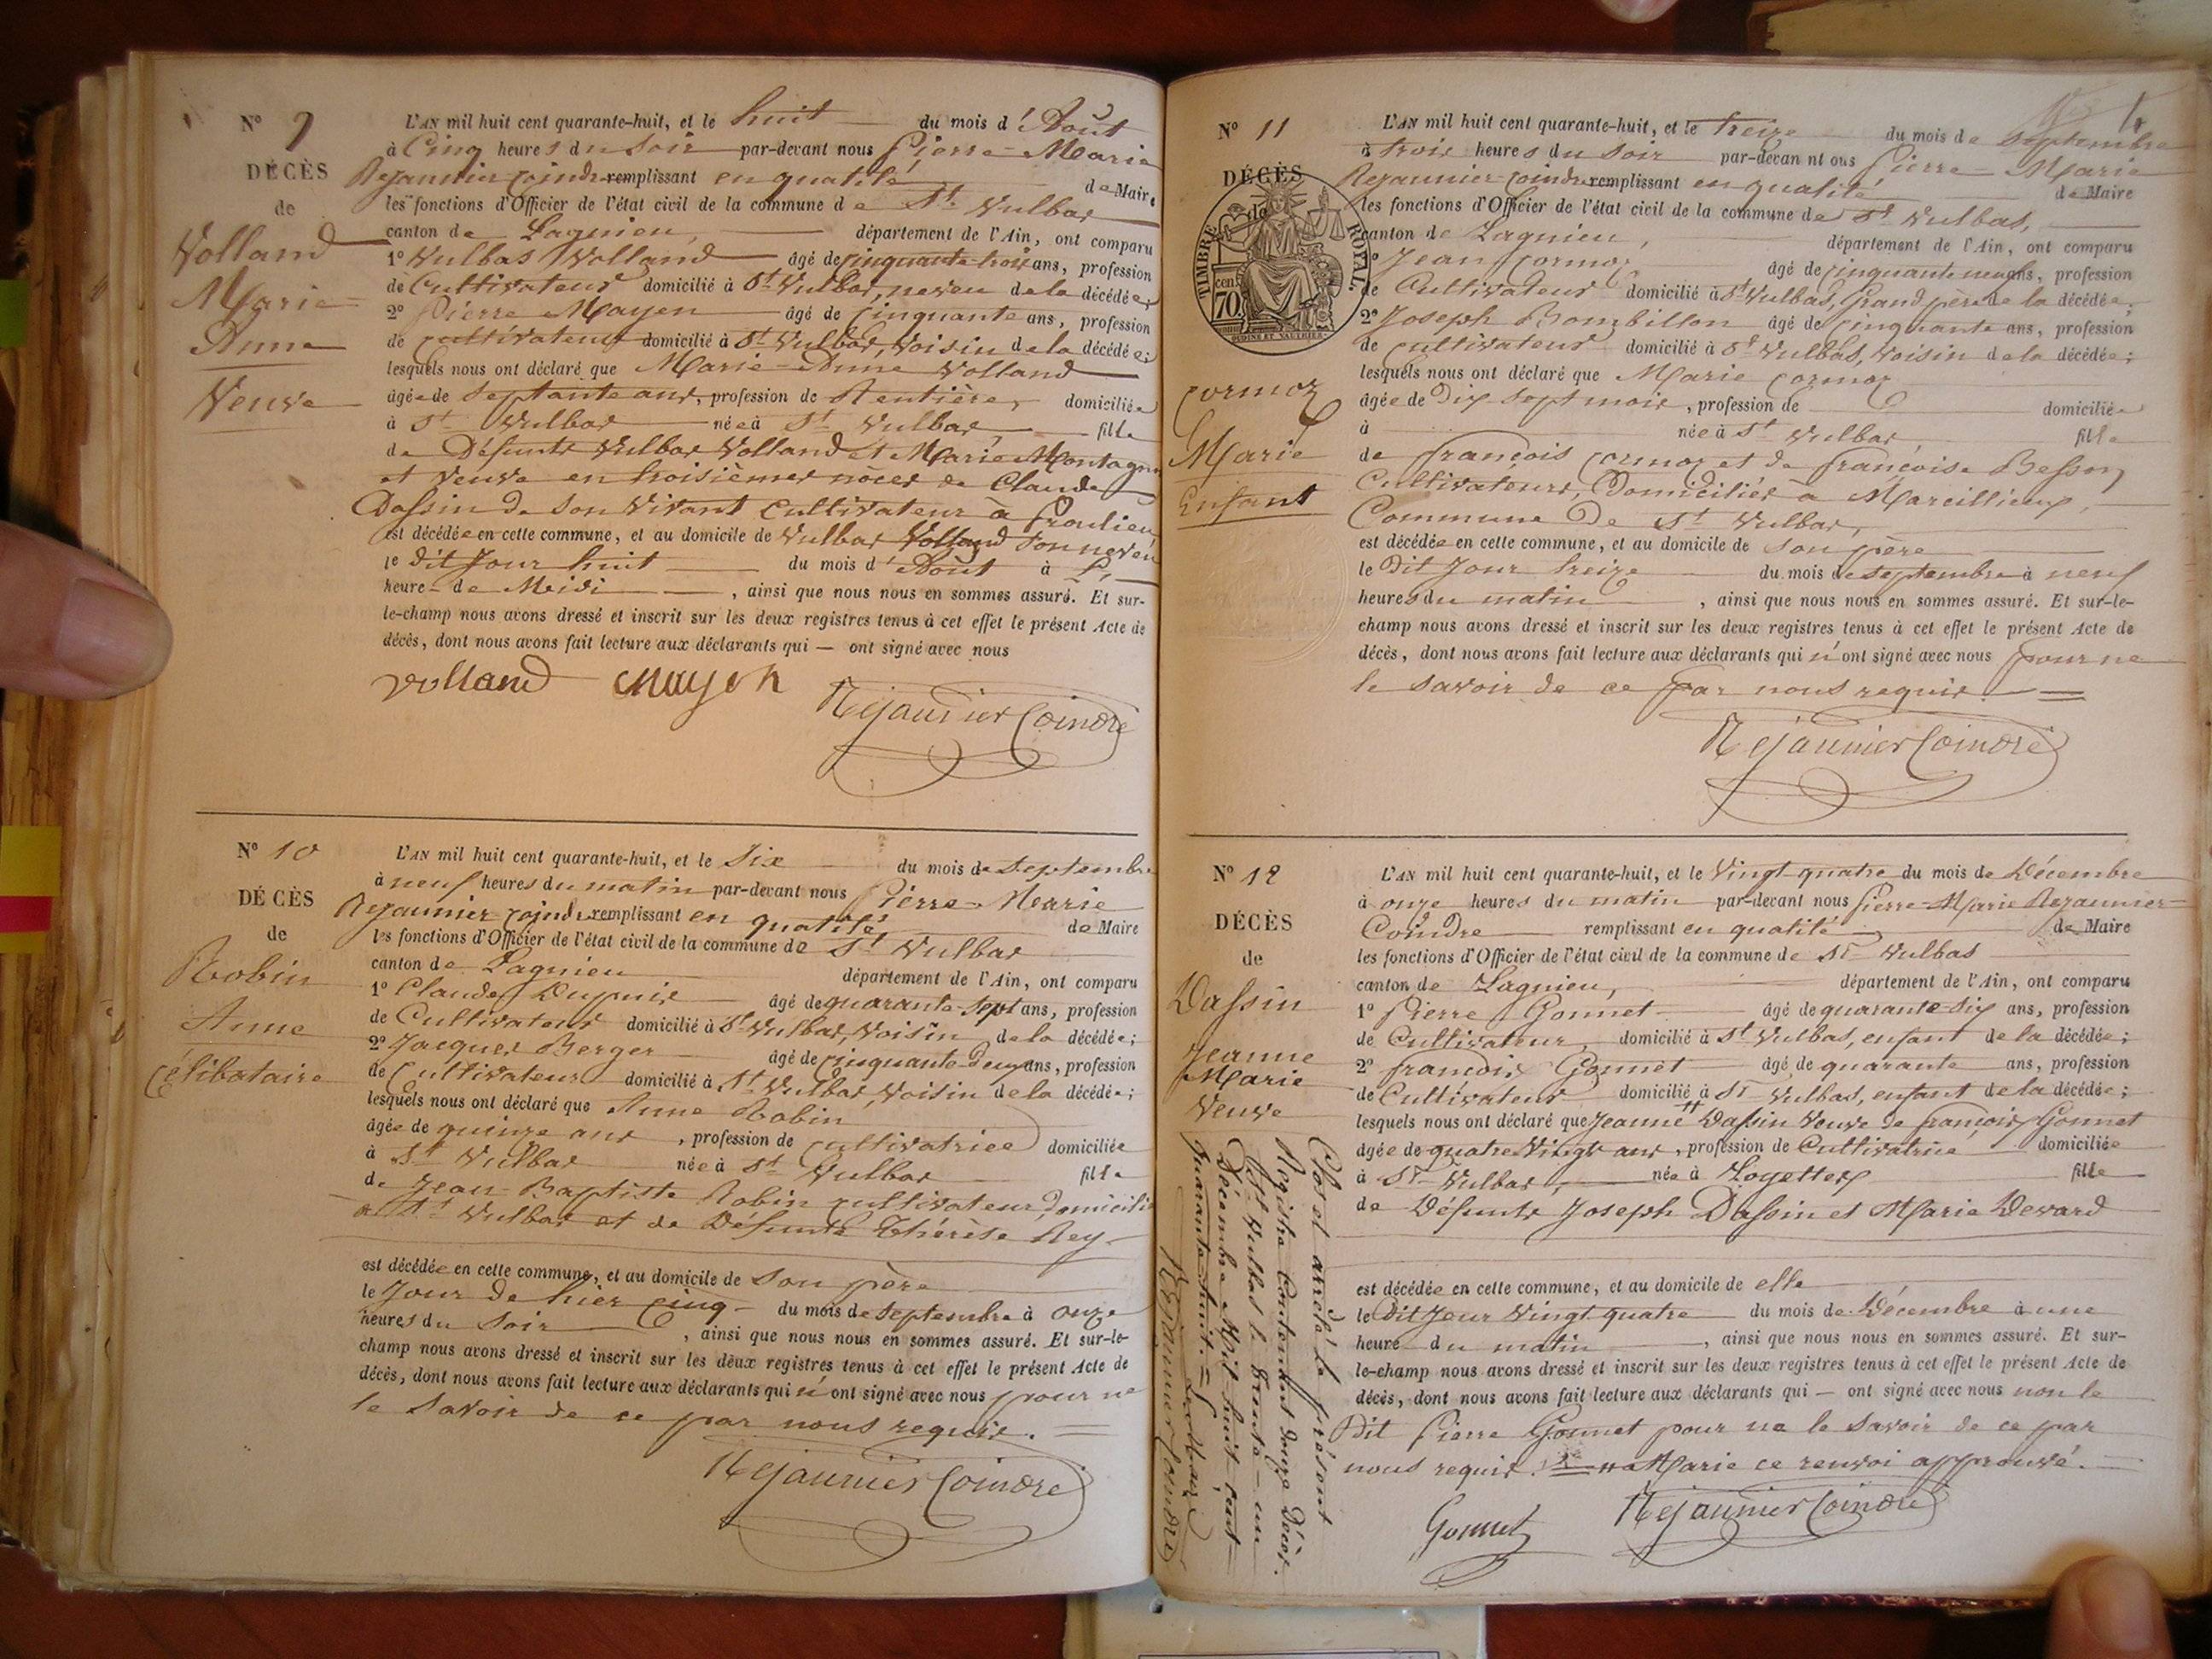 Nº 9
DÉCÈS
de
Volland
Marie
Anne
Veuve
L'AN mil huit cent quarante-huit, et le huit du mois d'Août
à Cinq heures du Soir par-devant nous Pierre-Marie
Rejaunier Coindre remplissant en qualité de Maire
les fonctions d'Officier de l'état civil de la commune de St Vulbas
canton de Lagnieu, département de l'Ain, ont comparu
1º Vulbas Volland âgé de cinquante trois ans, profession
de Cultivateur domicilié à St Vulbas, neveu de la décédée;
2º Pierre Mayen âgé de cinquante ans, profession
de cultivateur domicilié à St Vulbas, Voisin de la décédée;
lesquels nous ont déclaré que Marie-Anne Volland
âgée de septante ans, profession de Rentière, domiciliée
à St Vulbas née à St Vulbas, fille
de Défunts Vulbas Volland et Marie Montagne
et Veuve en troisièmes nôces de Claude
Dassin de son vivant Cultivateur à Proulieu
est décédée en cette commune, et au domicile de Vulbas Volland son neveu
le dit Jour huit du mois d'Août à L'
heure de Meidi, ainsi que nous nous en sommes assuré. Et sur-
le-champ nous avons dressé et inscrit sur les deux registres tenus à cet effet le présent Acte de
décès, dont nous avons fait lecture aux déclarants qui — ont signé avec nous
volland Mayen
Rejaunier Coindre
Nº 10
DÉCÈS
de
Robin
Anne
célibataire
L'AN mil huit cent quarante-huit, et le Six du mois de Septembre
à neuf heures du matin par-devant nous Pierre-Marie
Rejaunier Coindre remplissant en qualité de Maire
les fonctions d'Officier de l'état civil de la commune de St Vulbas
canton de Lagnieu département de l'Ain, ont comparu
1º Claude Dupuis âgé de quarante-sept ans, profession
de Cultivateur domicilié à St Vulbas, Voisin de la décédée;
2º Jacques Berger âgé de cinquante-deux ans, profession
de Cultivateur domicilié à St Vulbas, Voisin de la décédée;
lesquels nous ont déclaré que Anne Robin
âgée de quinze ans, profession de cultivatrice domiciliée
à St Vulbas née à St Vulbas fille
de Jean-Baptiste Robin cultivateur, domicilié
à St Vulbas et de Défunte Thérèse Rey
est décédée en cette commune, et au domicile de son père
le Jour de hier cinq du mois de Septembre à onze
heures du Soir, ainsi que nous nous en sommes assuré. Et sur-le-
champ nous avons dressé et inscrit sur les deux registres tenus à cet effet le présent Acte de
décès, dont nous avons fait lecture aux déclarants qui n'ont signé avec nous pour ne
le Savoir de ce par nous requis.
Rejaunier Coindre
Nº 11
DÉCÈS
de
TIMBRE ROYAL
70 cen
OUDINE ET VAUTHIER
Cormoz
Marie
Enfant
L'AN mil huit cent quarante-huit, et le treize du mois de Septembre
à trois heures du soir par-devan nt ous Pierre-Marie
Rejaunier-Coindre remplissant en qualité de Maire
les fonctions d'Officier de l'état civil de la commune de St Vulbas,
canton de Lagnieu, département de l'Ain, ont comparu
1º Jean Cormoz âgé de cinquante neuf ans, profession
de Cultivateur domicilié à St Vulbas, Grand père de la décédée;
2º Joseph Bombillon âgé de cinquante ans, profession
de cultivateur domicilié à St Vulbas, voisin de la décédée;
lesquels nous ont déclaré que Marie Cormoz
âgée de Dix sept mois, profession de domiciliée
à née à St Vulbas, fille
de françois Cormoz et de françoise Besson,
Cultivateurs, Domiciliés à Marcillieux,
Commune De St Vulbas,
est décédée en cette commune, et au domicile de son père
le Dit Jour treize du mois de septembre à neuf
heures du matin, ainsi que nous nous en sommes assuré. Et sur-le-
champ nous avons dressé et inscrit sur les deux registres tenus à cet effet le présent Acte de
décès, dont nous avons fait lecture aux déclarants qui n'ont signé avec nous pour ne
le savoir de ce par nous requis.
Rejaunier Coindre
Nº 12
DÉCÈS
de
Dassin
Jeanne
Marie
Veuve
L'AN mil huit cent quarante-huit, et le Vingt quatre du mois de Décembre
à onze heures du matin par-devant nous Pierre-Marie Rejaunier-
Coindre remplissant en qualité de Maire
les fonctions d'Officier de l'état civil de la commune de St Vulbas
canton de Lagnieu, département de l'Ain, ont comparu
1º Pierre Gonnet âgé de quarante-six ans, profession
de Cultivateur, domicilié à St Vulbas, enfant de la décédée;
2º françois Gonnet âgé de quarante ans, profession
de Cultivateur domicilié à St Vulbas, enfant de la décédée;
lesquels nous ont déclaré que Jeanne # Dassin Veuve de françois Gonnet
âgée de quatre Vingts ans, profession de Cultivatrice domiciliée
à St Vulbas, née à Loyettes fille
de Défunts Joseph Dassin et Marie Devard
est décédée en cette commune, et au domicile de elle
le Dit Jour Vingt quatre du mois de Décembre à une
heure du matin, ainsi que nous nous en sommes assuré. Et sur-
le-champ nous avons dressé et inscrit sur les deux registres tenus à cet effet le présent Acte de
décès, dont nous avons fait lecture aux déclarants qui — ont signé avec nous non le
Dit Pierre Gonnet pour ne le savoir de ce par
nous requis. # Marie ce renvoi approuvé.
Gonnet Rejaunier Coindre
Clos et arrêté le présent
Registre Contenant douze Décès.
St Vulbas le trente-un
Décembre Mil huit cent
quarante-huit.
Rejaunier Coindre